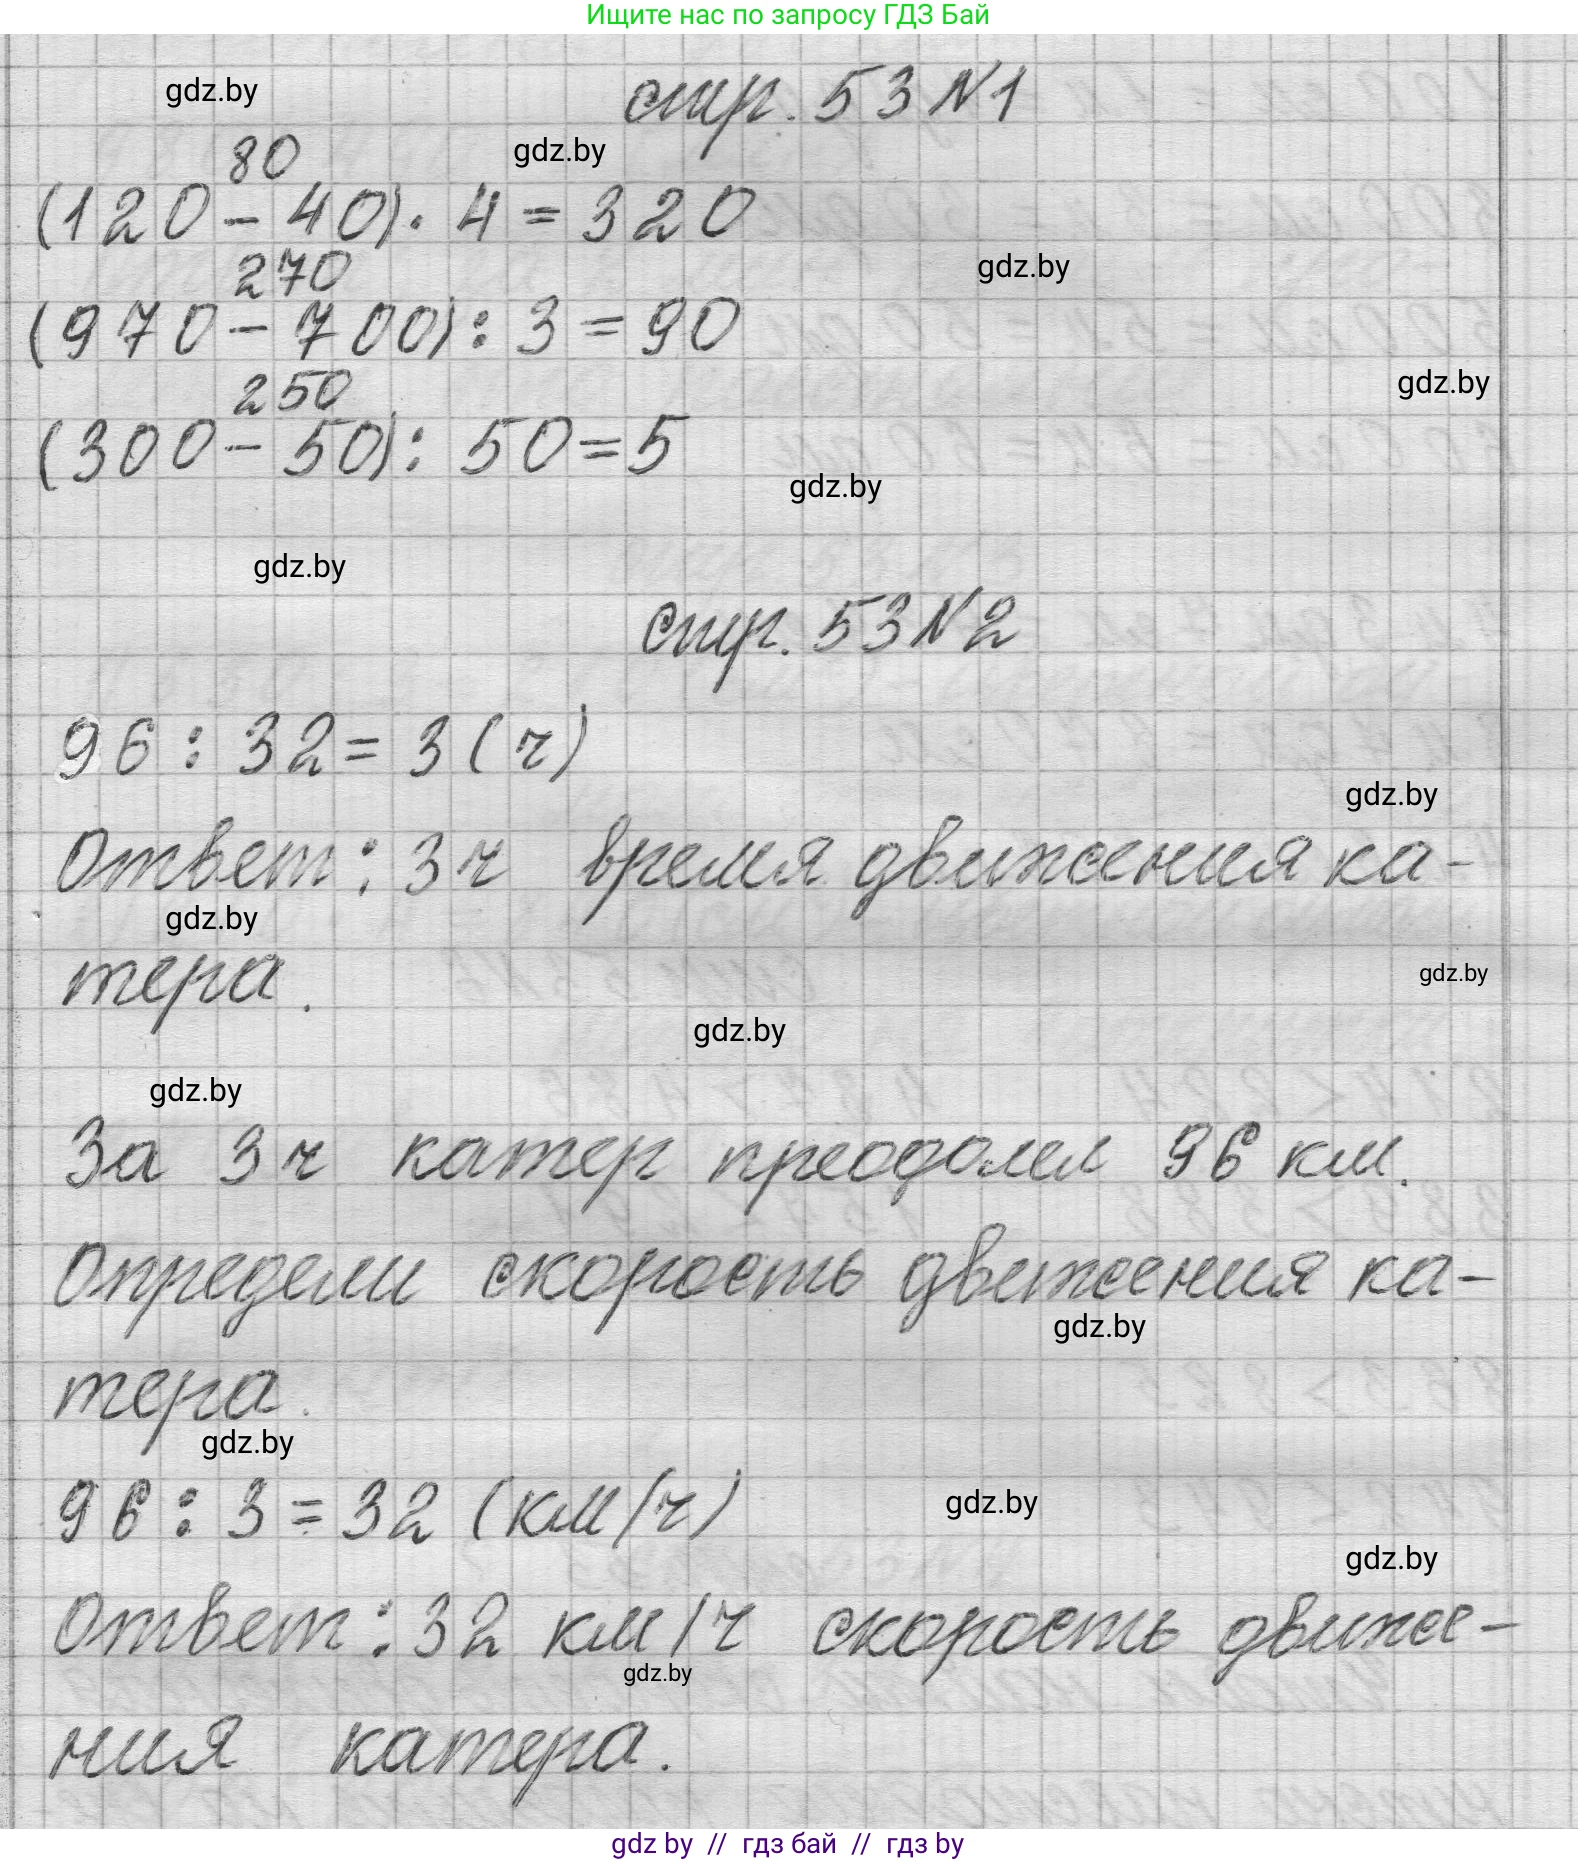 Ищите нас по запросу ГДЗ Бай
gdz.by
стр. 53 №1
80
gdz.by
(120-40)·4=320
270
gdz.by
(970-700):3=90
250
gdz.by
(300-50):50=5
gdz.by
gdz.by
стр. 53 №2
96:32=3(ч)
gdz.by
Ответ: 3ч время движения ка-
gdz.by
тера.
gdz.by
gdz.by
gdz.by
За 3ч катер преодолел 96 км.
Определи скорость движения ка-
gdz.by
тера.
gdz.by
96:3=32 (км/ч)
gdz.by
gdz.by
Ответ: 32 км/ч скорость движе-
gdz.by
ния катера.
gdz by // гдз бай // гдз by